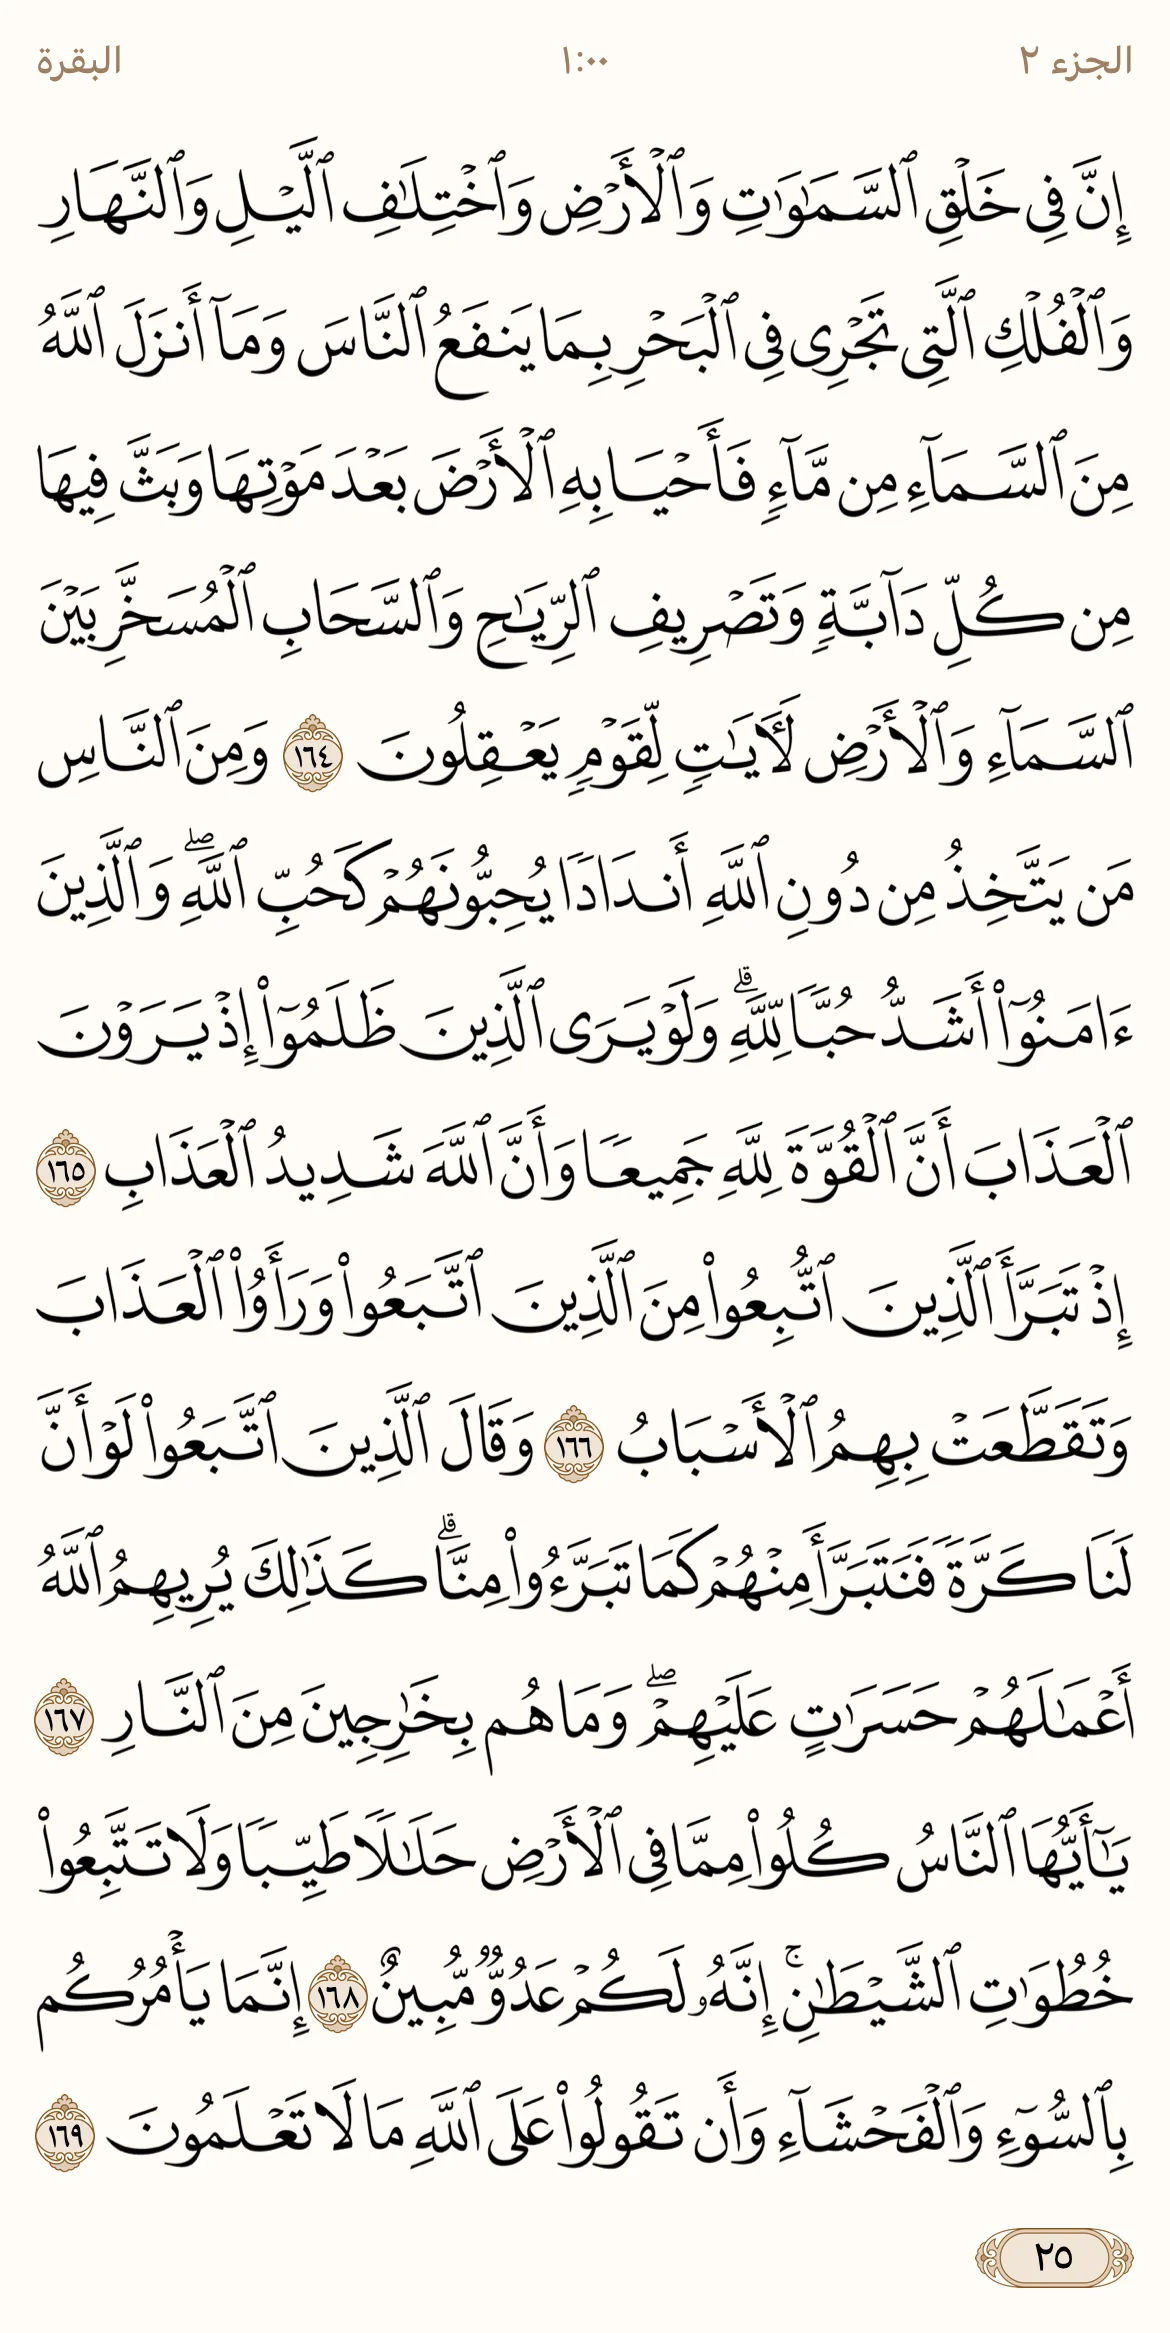 الجزء ٢ ١:٠٠ البقرة
إِنَّ فِي خَلۡقِ ٱلسَّمَٰوَٰتِ وَٱلۡأَرۡضِ وَٱخۡتِلَٰفِ ٱلَّيۡلِ وَٱلنَّهَارِ
وَٱلۡفُلۡكِ ٱلَّتِي تَجۡرِي فِي ٱلۡبَحۡرِ بِمَا يَنفَعُ ٱلنَّاسَ وَمَآ أَنزَلَ ٱللَّهُ
مِنَ ٱلسَّمَآءِ مِن مَّآءٖ فَأَحۡيَا بِهِ ٱلۡأَرۡضَ بَعۡدَ مَوۡتِهَا وَبَثَّ فِيهَا
مِن كُلِّ دَآبَّةٖ وَتَصۡرِيفِ ٱلرِّيَٰحِ وَٱلسَّحَابِ ٱلۡمُسَخَّرِ بَيۡنَ
ٱلسَّمَآءِ وَٱلۡأَرۡضِ لَأٓيَٰتٖ لِّقَوۡمٖ يَعۡقِلُونَ ١٦٤ وَمِنَ ٱلنَّاسِ
مَن يَتَّخِذُ مِن دُونِ ٱللَّهِ أَندَادٗا يُحِبُّونَهُمۡ كَحُبِّ ٱللَّهِۖ وَٱلَّذِينَ
ءَامَنُوٓاْ أَشَدُّ حُبّٗا لِّلَّهِۗ وَلَوۡ يَرَى ٱلَّذِينَ ظَلَمُوٓاْ إِذۡ يَرَوۡنَ
ٱلۡعَذَابَ أَنَّ ٱلۡقُوَّةَ لِلَّهِ جَمِيعٗا وَأَنَّ ٱللَّهَ شَدِيدُ ٱلۡعَذَابِ ١٦٥
إِذۡ تَبَرَّأَ ٱلَّذِينَ ٱتُّبِعُواْ مِنَ ٱلَّذِينَ ٱتَّبَعُواْ وَرَأَوُاْ ٱلۡعَذَابَ
وَتَقَطَّعَتۡ بِهِمُ ٱلۡأَسۡبَابُ ١٦٦ وَقَالَ ٱلَّذِينَ ٱتَّبَعُواْ لَوۡ أَنَّ
لَنَا كَرَّةٗ فَنَتَبَرَّأَ مِنۡهُمۡ كَمَا تَبَرَّءُواْ مِنَّاۗ كَذَٰلِكَ يُرِيهِمُ ٱللَّهُ
أَعۡمَٰلَهُمۡ حَسَرَٰتٍ عَلَيۡهِمۡۖ وَمَا هُم بِخَٰرِجِينَ مِنَ ٱلنَّارِ ١٦٧
يَٰٓأَيُّهَا ٱلنَّاسُ كُلُواْ مِمَّا فِي ٱلۡأَرۡضِ حَلَٰلٗا طَيِّبٗا وَلَا تَتَّبِعُواْ
خُطُوَٰتِ ٱلشَّيۡطَٰنِۚ إِنَّهُۥ لَكُمۡ عَدُوّٞ مُّبِينٌ ١٦٨ إِنَّمَا يَأۡمُرُكُم
بِٱلسُّوٓءِ وَٱلۡفَحۡشَآءِ وَأَن تَقُولُواْ عَلَى ٱللَّهِ مَا لَا تَعۡلَمُونَ ١٦٩
٢٥